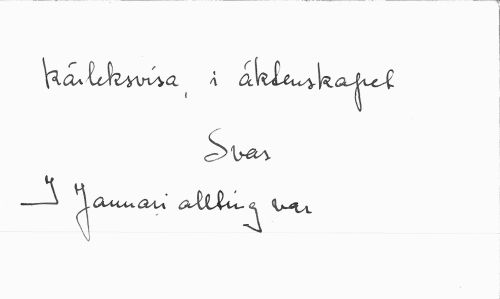 Kärleksvisa, i äktenskapet
Svar
I Januari allting var